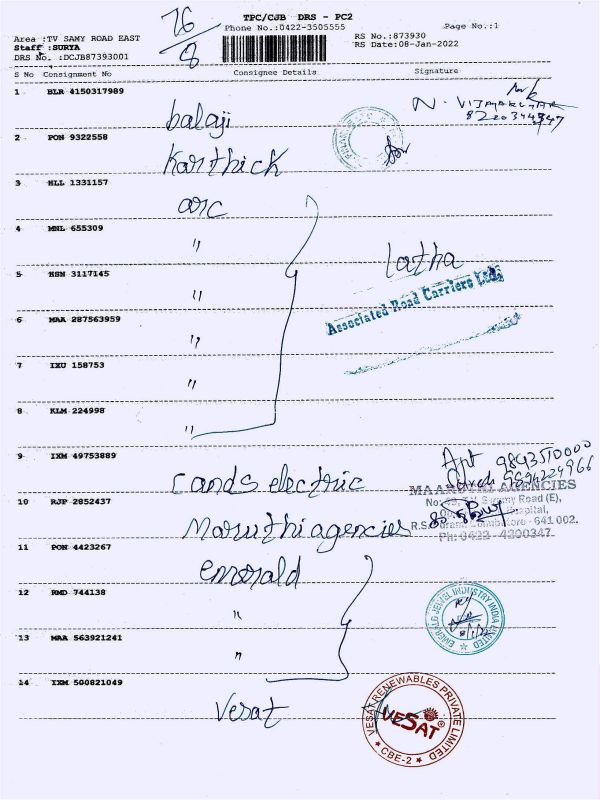 76/8
TPC/CJB DRS - PC2
Phone No.:0422-3505555
Page No.:1
Area :TV SAMY ROAD EAST
Staff :SURYA
DRS No. :DCJB87393001
RS No.:873930
RS Date:08-Jan-2022
S No Consignment No Consignee Details Signature
1 BLR 4150317989
balaji
N. VIJAYAKUMAR
2 PON 9322558
Karthick
3 HLL 1331157
arc
4 MNL 655309
"
latha
5 HSN 3117145
"
Associated Road Carriers Ltd.
6 MAA 287563959
"
7 IXU 158753
"
8 KLM 224998
"
9 IXM 49753889
cands electric
9843510000
9894229966
MAARUTHI AGENCIES
10 RJP 2852437
Maruthi agencies
Coimbatore - 641 002.
Ph: 0422 - 4200347
11 PON 4423267
emerald
12 RMD 744138
"
EMERALD JEWEL INDUSTRY INDIA LIMITED
13 MAA 563921241
"
14 IXM 500821049
Vesat
VESAT RENEWABLES PRIVATE LIMITED
VESAT
* CBE-2 *